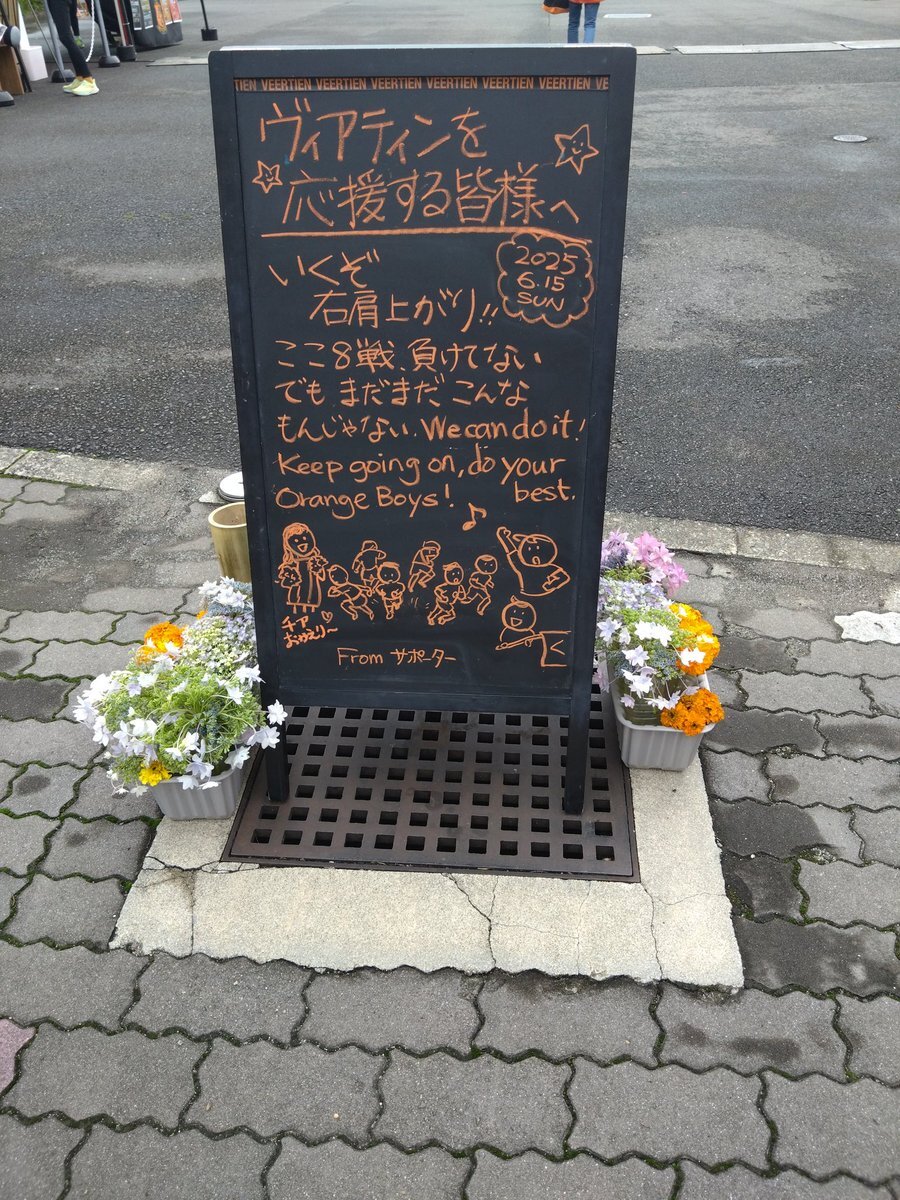 TIEN VEERTIEN VEERTIEN VEERTIEN VEERTIEN VEERTIEN VEERTIEN VE
ヴィアティンを
応援する皆様へ
2025
6.15
SUN
いくぞ
右肩上がり!!
ここ8戦、負けてない
でも まだまだ こんな
もんじゃない。We can do it!
Keep going on, do your
best.
Orange Boys!
チア
おかえり〜
From サポーター